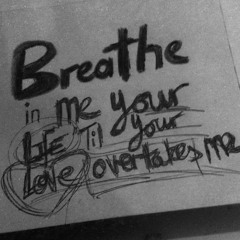 Breathe
in me your
LIFE Til your
Love overtakes me